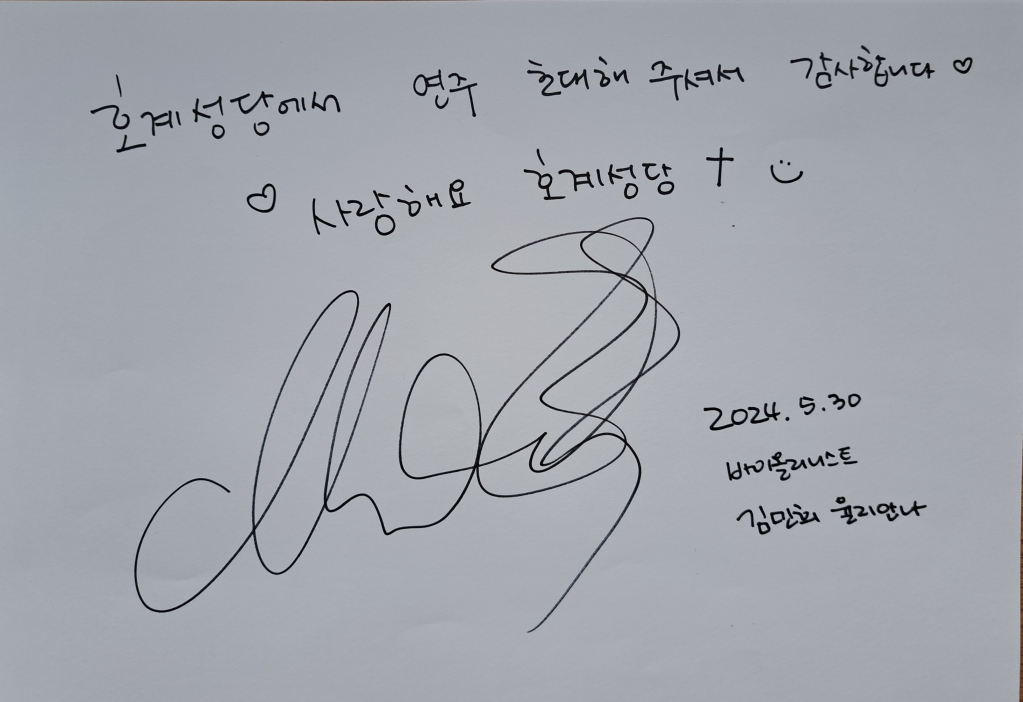 호계성당에서 연주 초대해 주셔서 감사합니다 ♡
♡ 사랑해요 호계성당 ✝ :)
2024. 5. 30
바이올리니스트
김민희 율리안나